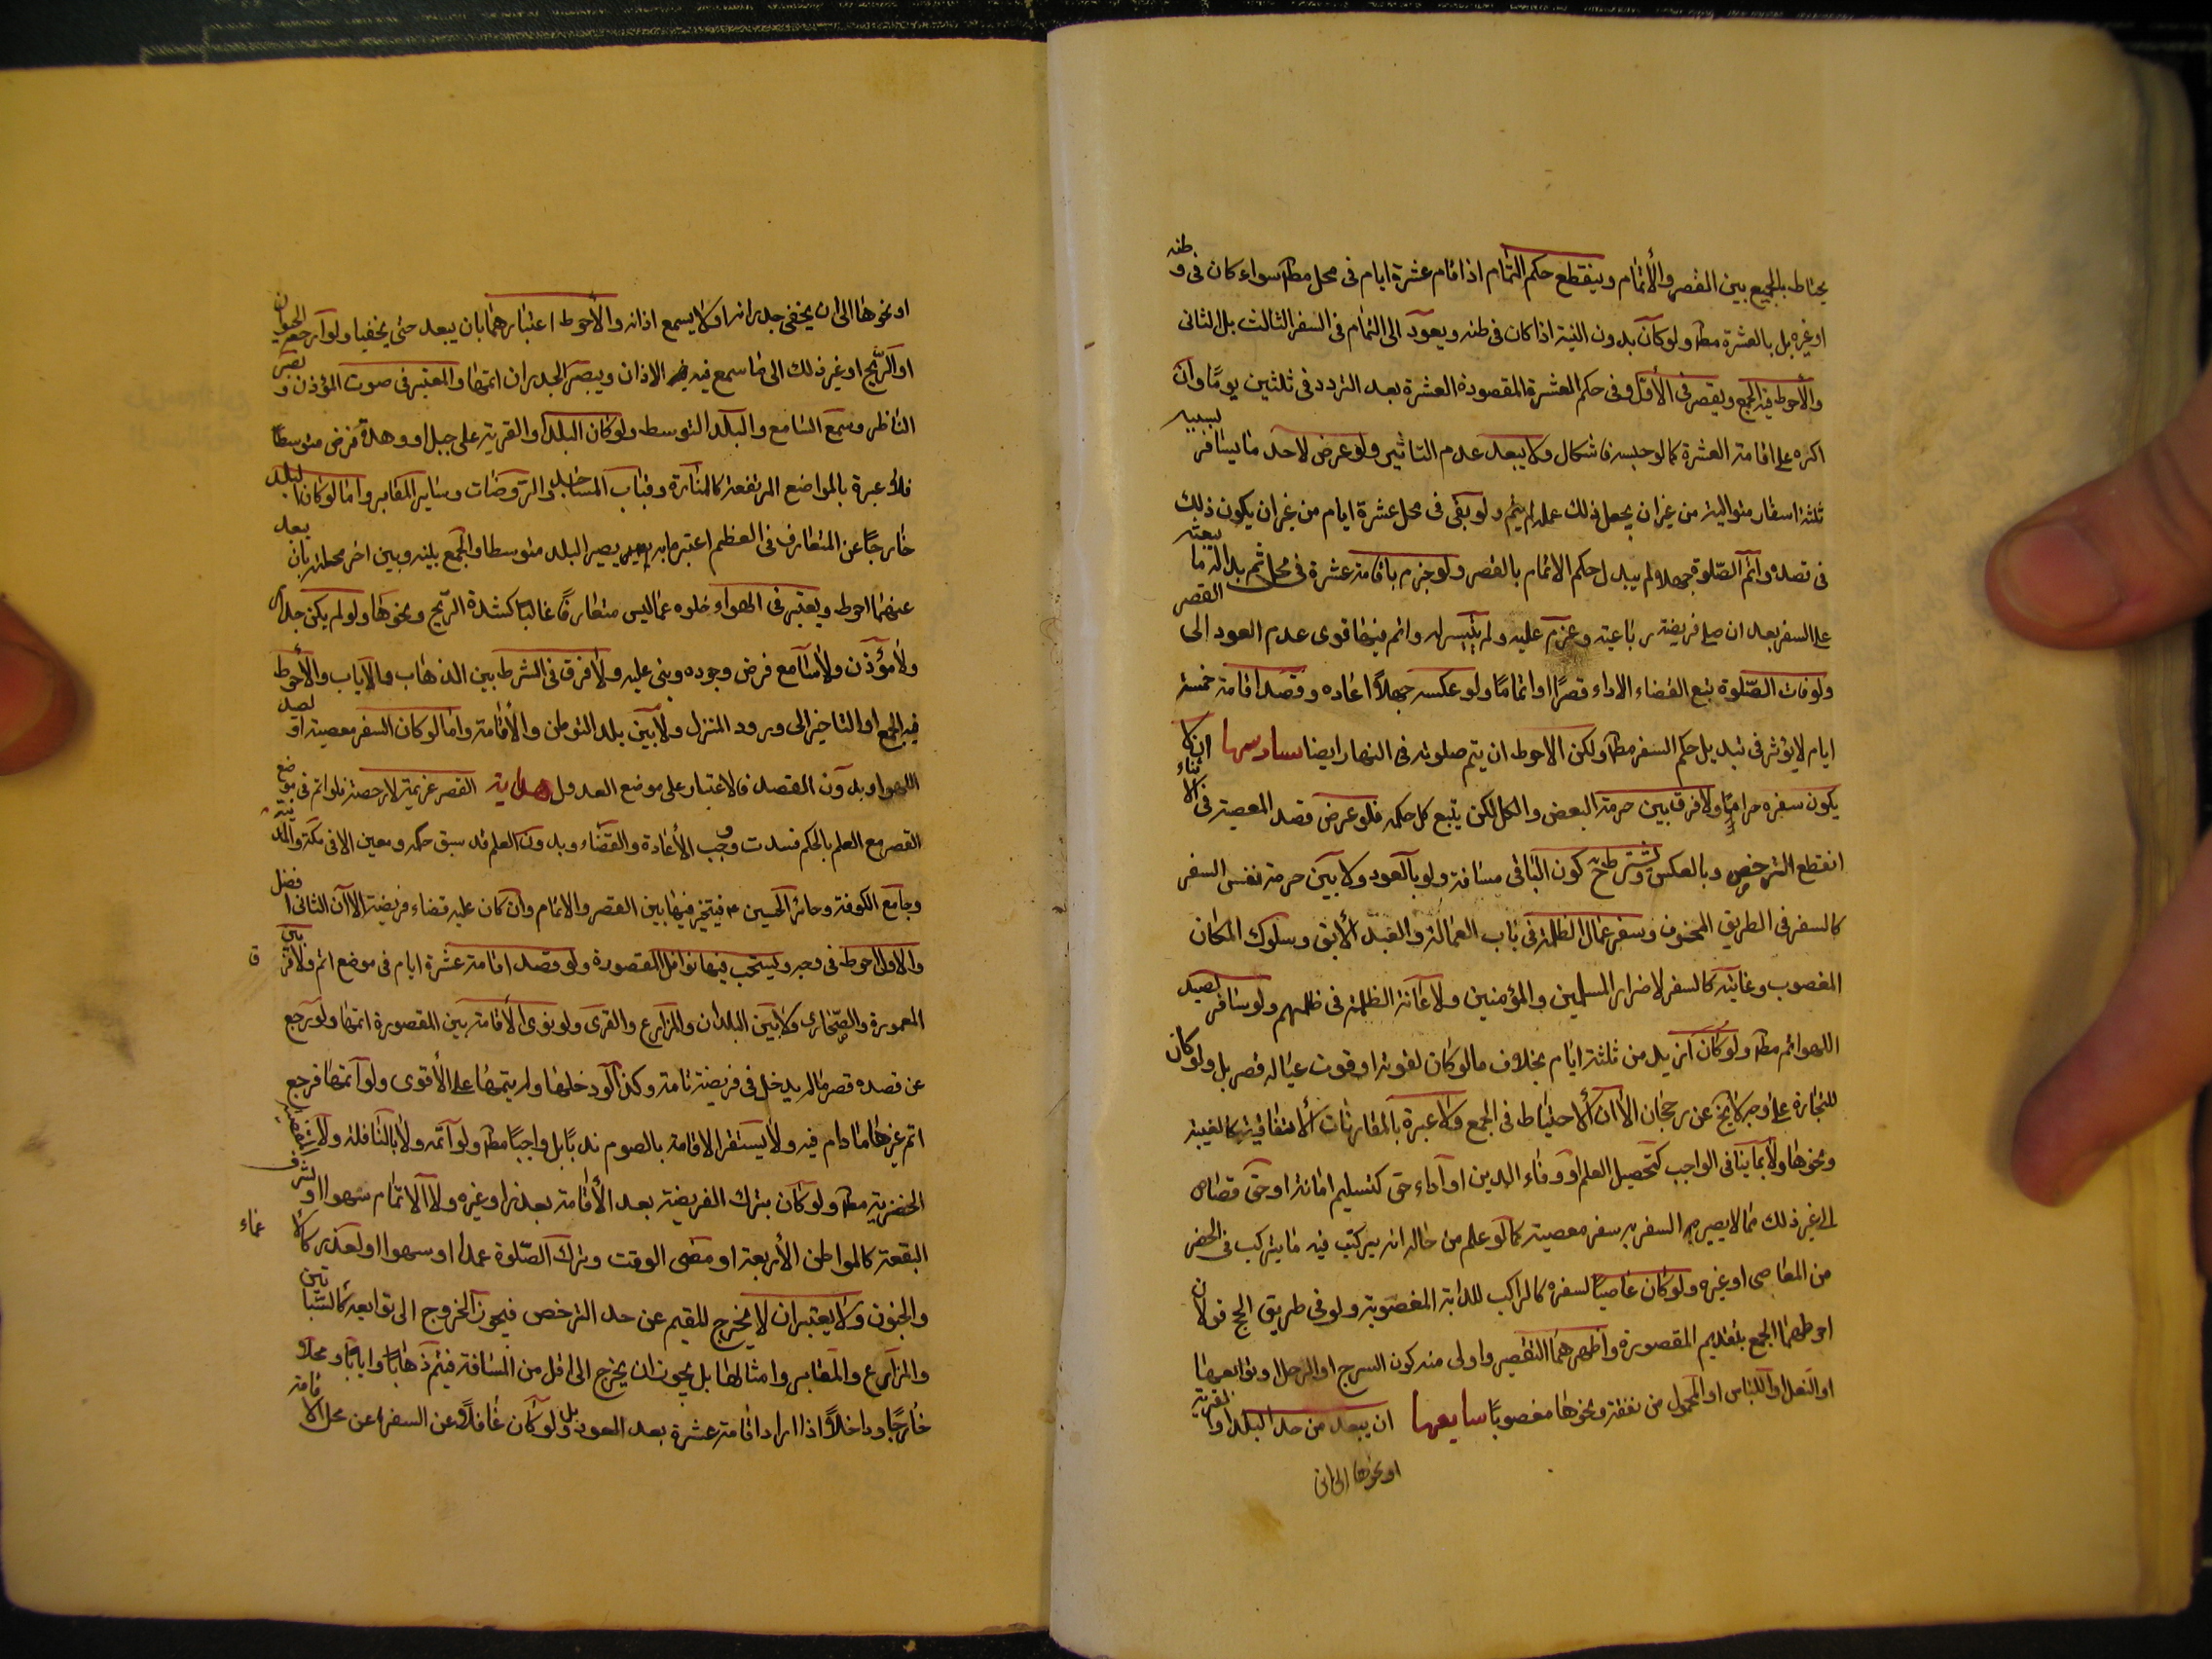 يحتاط بالجمع بين القصر والأتمام وينقطع حكم التمام اذا اقام عشرة ايام فى محل مطا سواء كان فى وطنه
او غيره بل بالعشرة مطا ولو كان بدون النية اذا كان فى وطنه ويعود الى التمام فى السفر الثالث بل الثانى
والأحوط فيه الجمع ويقصر فى الأول وفى حكم العشرة المقصودة العشرة بعد التردد فى ثلثين يوما وان
اكره على اقامة العشرة كما لو حبس فاشكال ولا يبعد عدم التاثير ولو عرض لاحد ما يسافر لسببه
ثلثة اسفار متوالية من غير ان يجعل ذلك عمله لم يتم ولو بقى فى محل عشرة ايام من غير ان يكون ذلك
فى قصده واتم الصلوة جهلا لم يبدل حكم الاتمام بالقصر ولو جزم باقامة عشرة فى محل ثم بدا له ما يبعثه
على السفر بعد ان صلى فريضة رباعية وعزم عليه ولم يتيسر له واتم فيها قوى عدم العود الى القصر
ولو فات الصلوة يتبع القضاء الاداء قصرا او اتماما ولو عكس جهلا اعاده وقصد اقامة خمسة
ايام لا يؤثر فى تبديل حكم السفر مطا ولكن الاحوط ان يتم صلوته فى النهار ايضا سادسها ان لا
يكون سفره حراما ولا فرق بين حرمة البعض والكل لكن يتبع كل حكمه فلو عرض قصد المعصية فى الاثناء
انقطع الترخص وبالعكس ويشترط ح كون الباقى مسافة ولو بالعود ولا بين حرمة نفس السفر
كالسفر فى الطريق المخوف وسفر عمال الظلمة فى باب العمالة والعبد الأبق وسلوك المكان
المغصوب وغايته كالسفر لاضرار المسلمين والمؤمنين ولاعانة الظلمة فى ظلمهم ولو سافر لصيد
اللهو اتم مطا ولو كان ازيد من ثلثة ايام بخلاف ما لو كان لقوته او قوت عياله قصر بل ولو كان
للتجارة على وجه لا يخ عن رجحان الا ان الاحتياط فى الجمع ولا عبرة بالمقارنات الأتفاقية كالغيبة
ونحوها ولا بما ينافى الواجب كتحصيل العلم او وفاء الدين او اداء حق كتسليم امانة او حق قصاص
الى غير ذلك مما لا يصير السفر به سفر معصية كما لو علم من حاله انه يرتكب فيه ما يترك فى الحضر
من المعاصى او غيره ولو كان عاصيا لسفره كالراكب للدابة المغصوبة ولو فى طريق الحج فقولان
احوطهما الجمع بتقديم المقصورة واظهرهما التقصير واولى منه كون السرج او الرحل او توابعها
او النعل او اللباس او المحمول من نفقة ونحوها مغصوبا سابعها ان يبعد من حد البلد او القرية
او نحوها الى ان
او نحوها الى ان يخفى جدرانه او لا يسمع اذانه والأحوط اعتبارهما بان يبعد حتى يخفيا ولو ارجعه الحيوان
او الريح او غير ذلك الى ما سمع فيه الاذان ويبصر الجدران اتمها والمعتبر فى صوت المؤذن وبصر
الناظر وسمع السامع والبلد التوسط ولو كان البلد او القرية على جبل او وهدة فرض متوسطا
فلا عبرة بالمواضع المرتفعة كالمنارة وقباب المساجد والروضات وساير المقابر واما لو كان البلد
خارجا عن المتعارف فى العظم اعتبر ما به يصير البلد متوسطا والجمع بينه وبين اخر محلة بان يبعد
عنهما احوط ويعتبر فى الهواء خلوه عما ليس متعارفا غالبا كشدة الريح ونحوها ولو لم يكن جدار
ولا مؤذن ولا سامع فرض وجوده وبنى عليه ولا فرق فى الشرط بين الذهاب والاياب والأحوط
فيه الجمع او التاخير الى ورود المنزل ولا بين بلد التوطن والأقامة واما لو كان السفر معصية او لصيد
اللهو او بدون القصد فالاعتبار على موضع العدول هداية القصر عزيمة لا رخصة فلو اتم فى موضع
القصر مع العلم بالحكم فسدت وجب الأعادة والقضاء وبدون العلم قد سبق حكمه ومعين الا فى مكة والمدينة
وجامع الكوفة وحائر الحسين ع فيتخير فيها بين القصر والاتمام وان كان عليه قضاء فريضة الا ان الثانى افضل
والاول احوط فى وجه ويستحب فيها نوافل المقصورة ولو قصد اقامة عشرة ايام فى موضع اتم ولا فرق بين
المعمورة والصحارى ولا بين البلدان والمزارع والقرى ولو نوى الأقامة بين المقصورة اتمها ولو رجع
عن قصده قصر ما لم يدخل فى فريضة تامة وكذا لو دخلها ولم يتمها على الأقوى ولو اتمها فرجع
اتم غيرها ما دام فيه ولا يستقر الاقامة بالصوم ندبا بل واجبا مطا ولو اتمه ولا بالنافلة ولا
الحضرية مطا ولو كان بترك الفريضة بعد الأقامة بعذر او غيره ولا الاتمام سهوا او لشرف
البقعة كالمواطن الأربعة او مضى الوقت وترك الصلوة عمدا او سهوا او لعذر كالاغماء
والجنون ولا يعتبر ان لا يخرج المقيم عن حد الترخص فيجوز الخروج الى توابعه كالبساتين
والمزارع والمقابر وامثالها بل يجوز ان يخرج الى اقل من المسافة فيتم ذهابا وايابا ومحلا
خارجا وداخلا اذا اراد اقامة عشرة بعد العود بل ولو كان غافلا عن السفر عن محل الاقامة